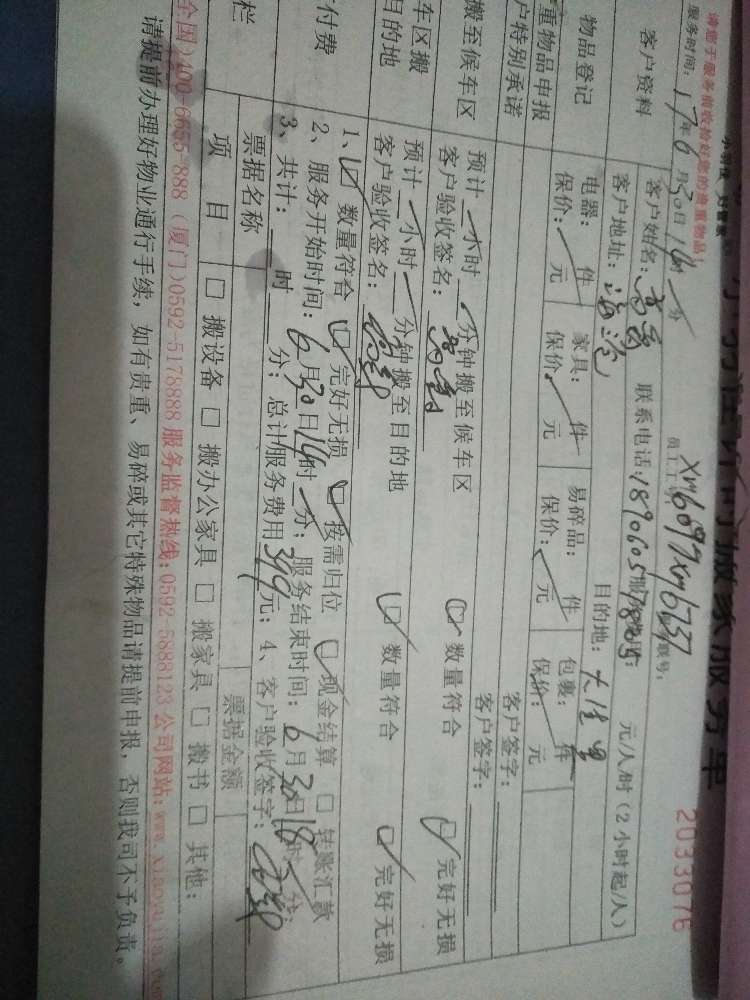 搬家服务单
2033076
请您于服务前收拾好您的贵重物品
服务时间：17年6月30日14时 分
员工工号：xm6097xm6737
客户资料
客户姓名：
联系电话：
元/人/时（2小时起/人）
客户地址：海沧
目的地：
物品登记
电器： 件
家具： 件
易碎品： 件
包裹： 件
保价： 元
保价： 元
保价： 元
保价： 元
重物品申报
客户签字：
户特别承诺
客户签字：
搬至候车区
预计 小时 分钟搬至候车区
数量符合
完好无损
客户验收签名：
车区搬
目的地
预计 小时 分钟搬至目的地
数量符合
完好无损
客户验收签名：
付费
1、 数量符合 完好无损 按需归位 现金结算 转账汇款
2、服务开始时间：6月30日14时 分；服务结束时间：6月30日18时 分；
3、共计： 时 分；总计服务费用 元；4、客户验收签字：
栏
票据名称
票据金额
项目
搬设备 搬办公家具 搬家具 搬书 其他：
全国）400-6655-888（厦门）0592-5178888 服务监督热线：0592-5888123 公司网站：
请提前办理好物业通行手续，如有贵重、易碎或其它特殊物品请提前申报，否则我司不予负责。